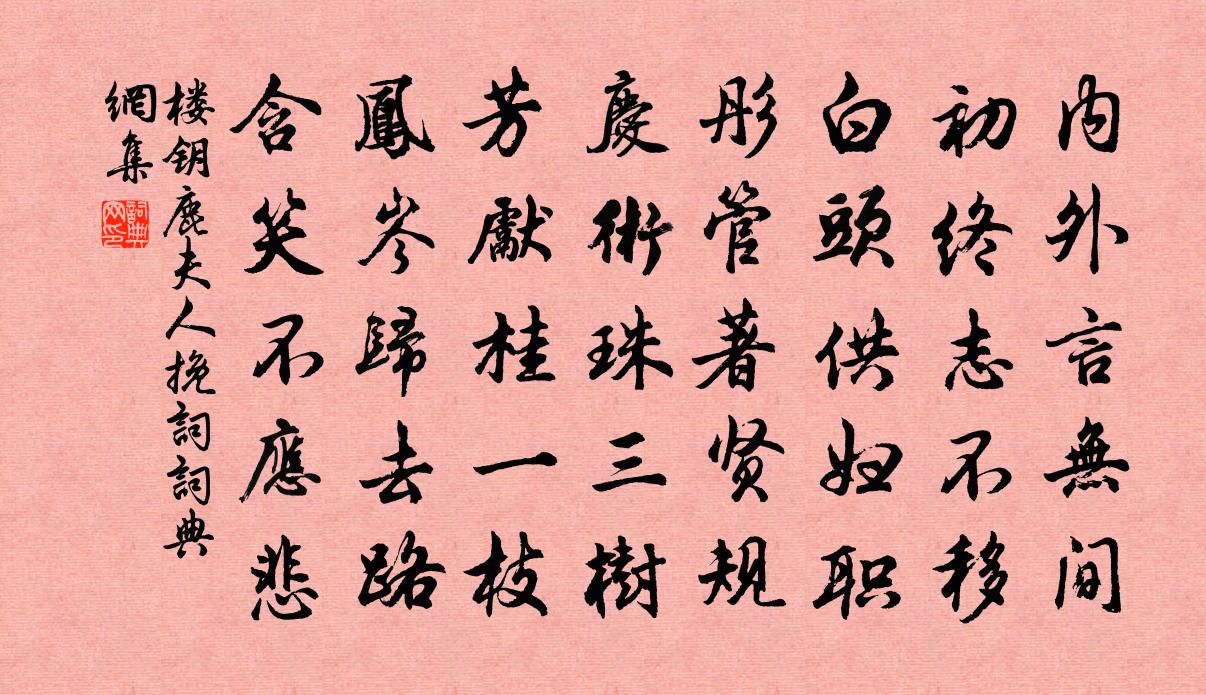 内外言無間
初終志不移
白頭供妇职
彤管著贤规
慶衍珠三樹
芳獻桂一枝
鳳岑歸去路
含笑不應悲
楼钥鹿夫人挽詞詞典
網集
詞典
网印